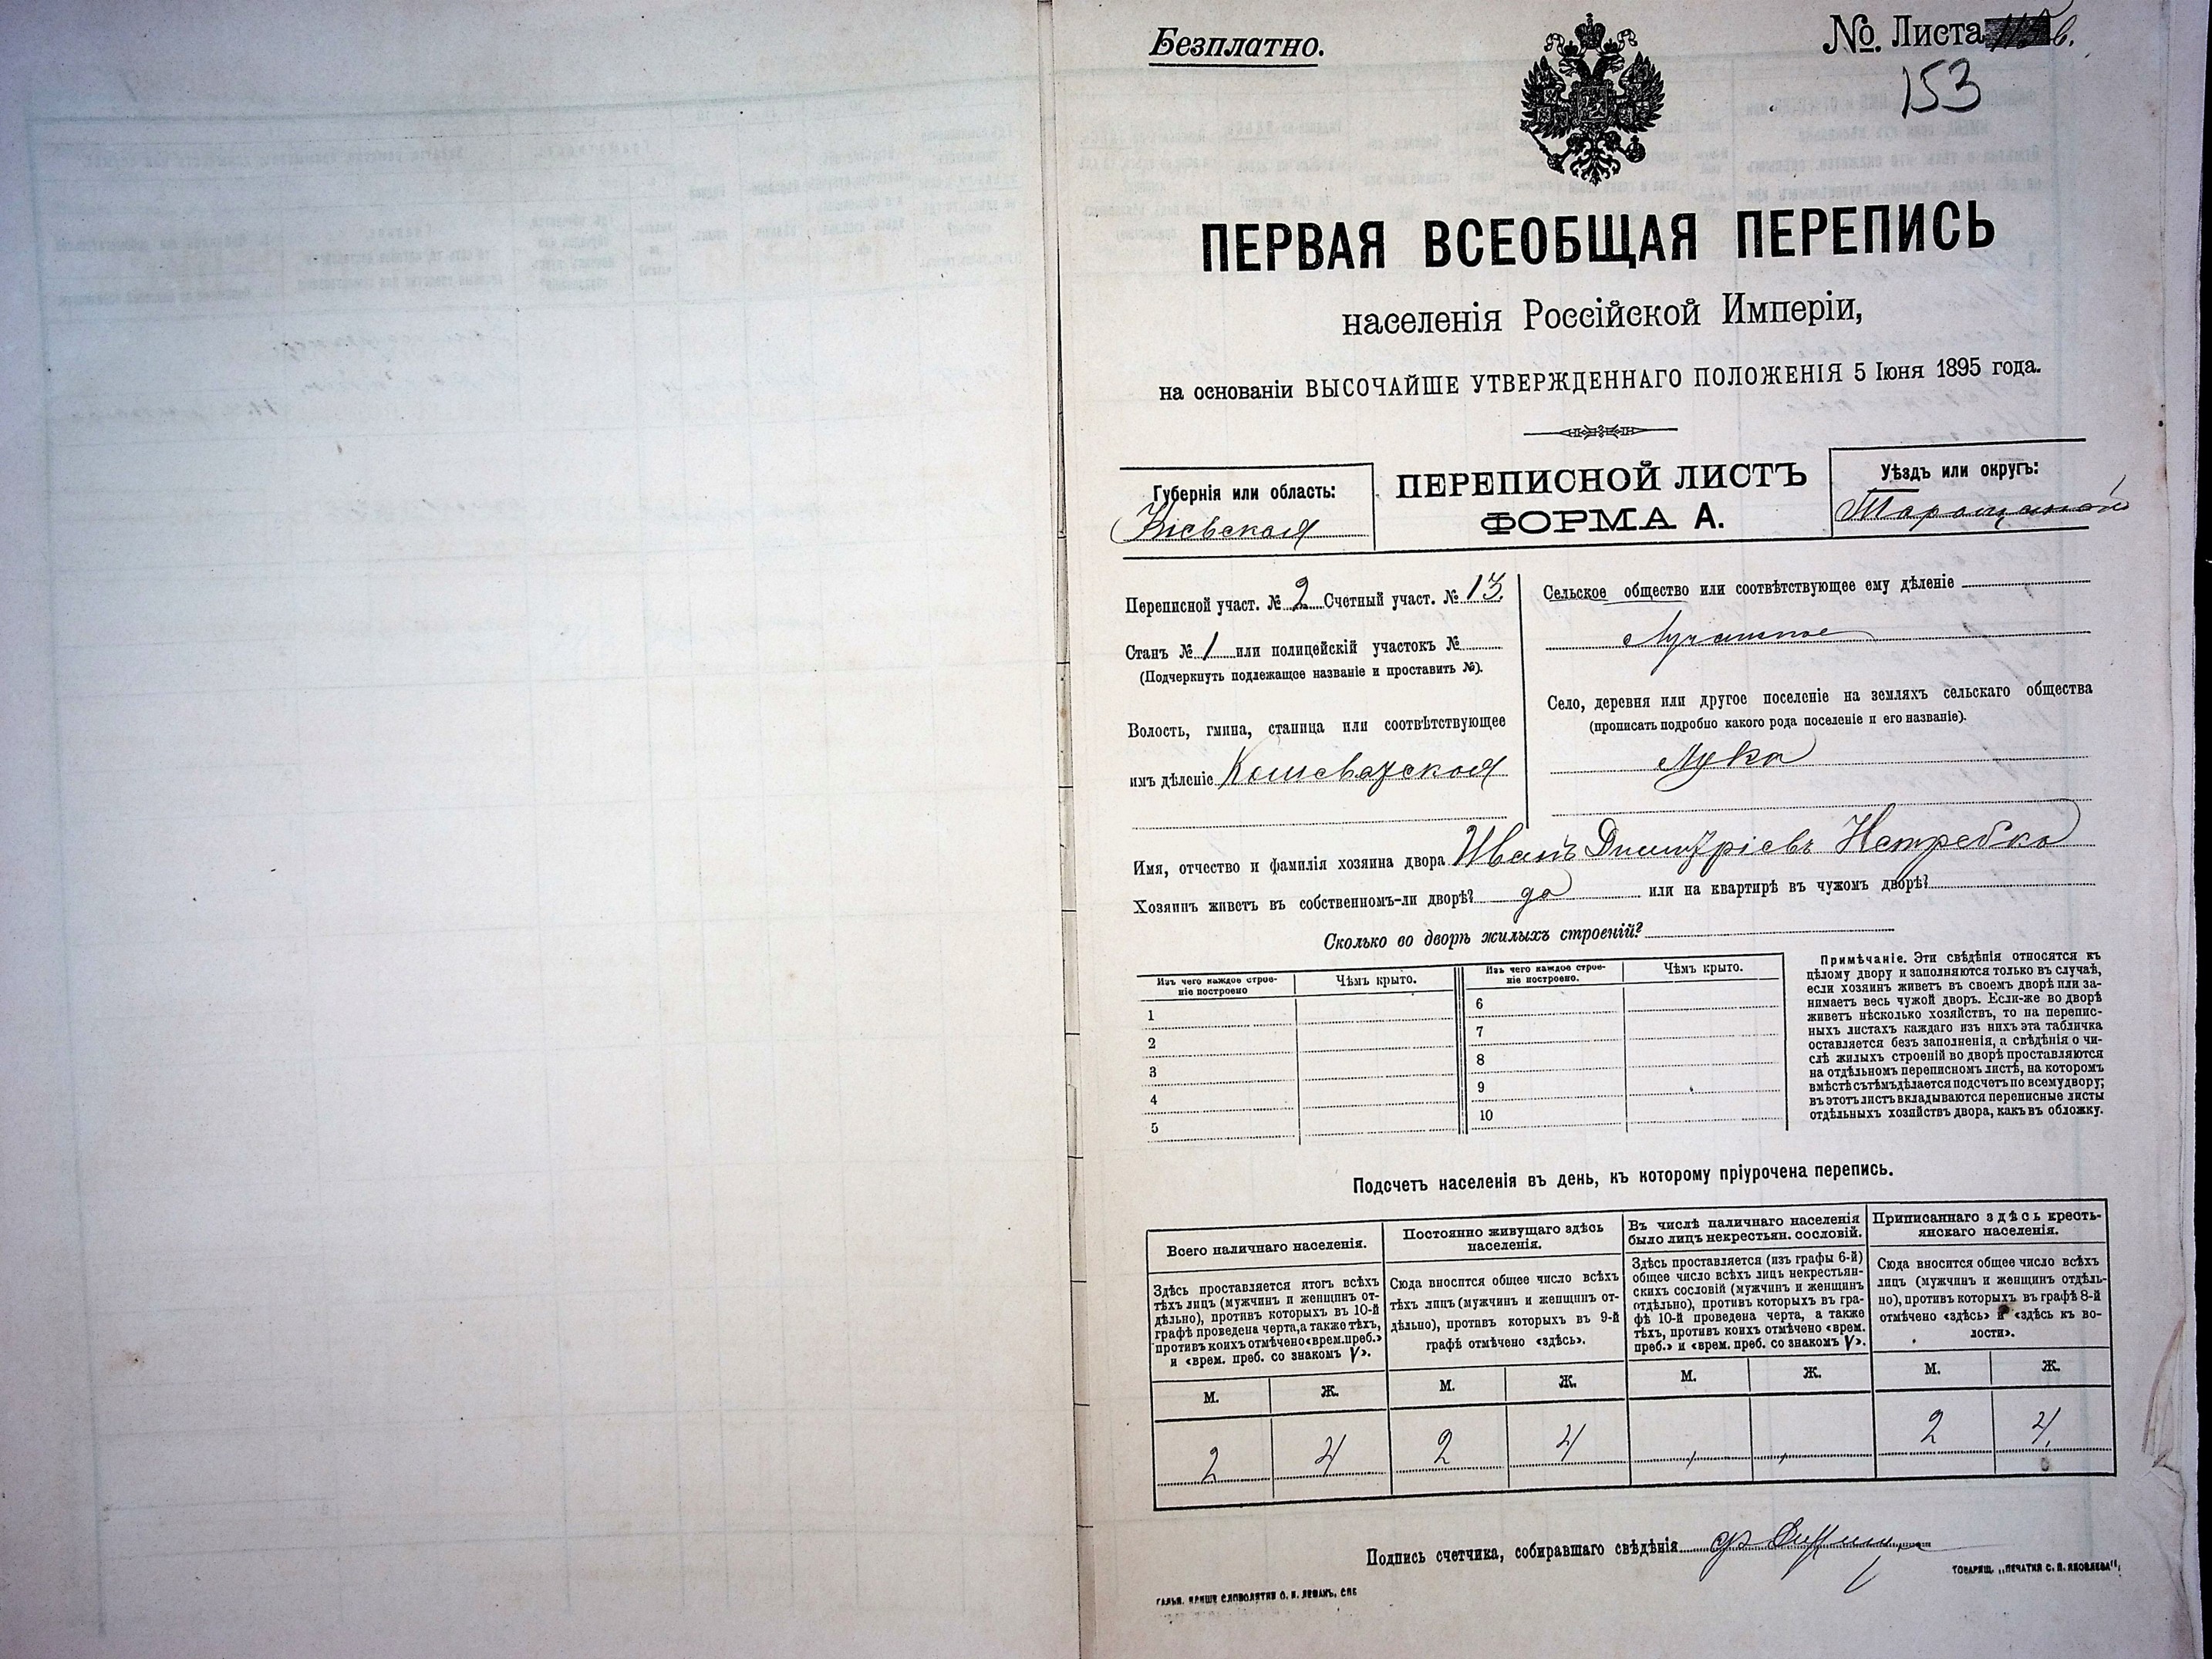 Безплатно.
№. Листа
153
ПЕРВАЯ ВСЕОБЩАЯ ПЕРЕПИСЬ
населенія Россійской Имперіи,
на основаніи ВЫСОЧАЙШЕ УТВЕРЖДЕННАГО ПОЛОЖЕНІЯ 5 Іюня 1895 года.
Губернія или область:
Кіевская
ПЕРЕПИСНОЙ ЛИСТЪ
ФОРМА А.
Уѣздъ или округъ:
Таращанскій
Переписной участ. № 2 Счетный участ. № 13.
Станъ № 1 или полицейскій участокъ №
(Подчеркнуть подлежащее названіе и проставить №).
Волость, гмина, станица или соотвѣтствующее
имъ дѣленіе Кошеватская
Сельское общество или соотвѣтствующее ему дѣленіе
Лучанское
Село, деревня или другое поселеніе на земляхъ сельскаго общества
(прописать подробно какого рода поселеніе и его названіе).
Лука
Имя, отчество и фамилія хозяина двора Иванъ Дмитріевъ Нетребко
Хозяинъ живетъ въ собственномъ-ли дворѣ? да или на квартирѣ въ чужомъ дворѣ?
Сколько во дворѣ жилыхъ строеній?
Изъ чего каждое строе-
ніе построено
Чѣмъ крыто.
Изъ чего каждое строе-
ніе построено.
Чѣмъ крыто.
1
2
3
4
5
6
7
8
9
10
Примѣчаніе. Эти свѣдѣнія относятся къ
цѣлому двору и заполняются только въ случаѣ,
если хозяинъ живетъ въ своемъ дворѣ или за-
нимаетъ весь чужой дворъ. Если-же во дворѣ
живетъ нѣсколько хозяйствъ, то на перепис-
ныхъ листахъ каждаго изъ нихъ эта табличка
оставляется безъ заполненія, а свѣдѣнія о чи-
слѣ жилыхъ строеній во дворѣ проставляются
на отдѣльномъ переписномъ листѣ, на которомъ
вмѣстѣ съ тѣмъ дѣлается подсчетъ по всему двору;
въ этотъ листъ вкладываются переписные листы
отдѣльныхъ хозяйствъ двора, какъ въ обложку.
Подсчетъ населенія въ день, къ которому пріурочена перепись.
Всего наличнаго населенія.
Здѣсь проставляется итогъ всѣхъ
тѣхъ лицъ (мужчинъ и женщинъ от-
дѣльно), противъ которыхъ въ 10-й
графѣ проведена черта, а также тѣхъ,
противъ коихъ отмѣчено «врем. преб.»
и «врем. преб. со знакомъ V».
М.
Ж.
2
4
Постоянно живущаго здѣсь
населенія.
Сюда вносится общее число всѣхъ
тѣхъ лицъ (мужчинъ и женщинъ от-
дѣльно), противъ которыхъ въ 9-й
графѣ отмѣчено «здѣсь».
М.
Ж.
2
4
Въ числѣ наличнаго населенія
было лицъ некрестьян. сословій.
Здѣсь проставляется (изъ графы 6-й)
общее число всѣхъ лицъ некрестьян-
скихъ сословій (мужчинъ и женщинъ
отдѣльно), противъ которыхъ въ гра-
фѣ 10-й проведена черта, а также
тѣхъ, противъ коихъ отмѣчено «врем.
преб.» и «врем. преб. со знакомъ V».
М.
Ж.
Приписаннаго здѣсь кресть-
янскаго населенія.
Сюда вносится общее число всѣхъ
лицъ (мужчинъ и женщинъ отдѣль-
но), противъ которыхъ въ графѣ 8-й
отмѣчено «здѣсь» и «здѣсь къ во-
лости».
М.
Ж.
2
4.
Подпись счетчика, собиравшаго свѣдѣнія
ГАЛЬВ. КЛИШЕ СЛОВОЛИТНИ О. И. ЛЕМАНЪ, СПБ
ТОВАРИЩ. „ПЕЧАТНЯ С. П. ЯКОВЛЕВА“